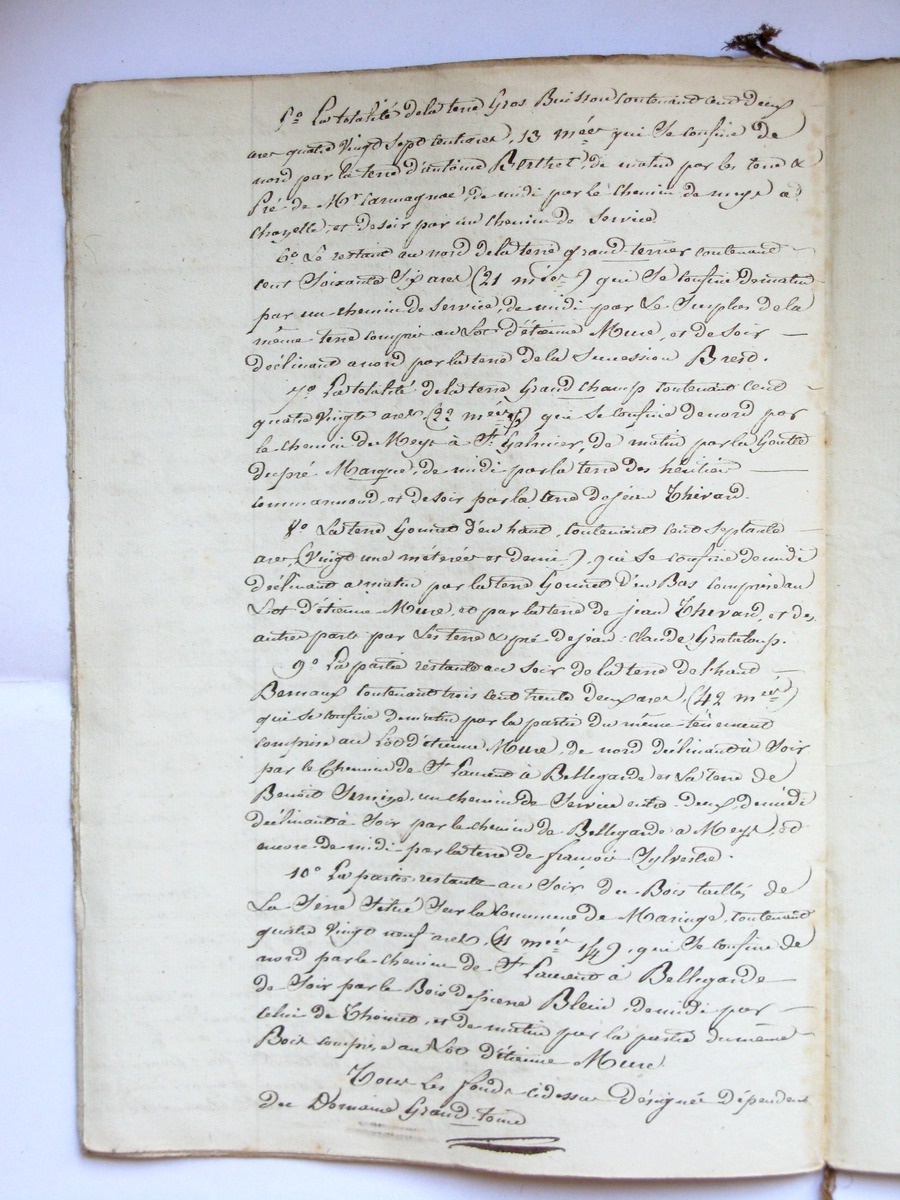 5° La totalité de la terre Gros Buisson contenant cent deux
ares quatre vingt sept centiares, 13 mées qui se confine de
nord par la terre d'antoine Berthet, de matin par les terre &
Pré de Mr Carmagnac, de midi par le chemin de meys a
Chazelle, et de soir par un chemin de Service
6° Le restant au nord de la terre grand-terres contenant
cent Soixante Six ares (21 mées) qui se confine de matin
par un chemin de Service, de midi par Le Surplus de la
même terre compris au Lot d'étienne Mure, et de soir
déclinant a nord par la terre de la Succession Bresd.
7° La totalité de la terre Grand champ contenant cent
quatre Vingts ares (22 mées) qui se confine de nord par
le chemin de Meys à St Galmier, de matin par la Goutte
du pré Marque, de midi par la terre des héritiers
commarmond, et de soir par la terre de jean Thevard.
8° La terre Gounot d'en haut, contenant cent Septante
ares, (Vingt une méterée et demi), qui Se confine de midi
déclinant a matin par la terre Gounot d'en Bas comprise au
Lot d'étienne Mure, et par la terre de jean Thevard, et des
autres parts par Les terre & pré de jean-claude Grataloup.
9° La partie restante au Soir de la terre de haut
Bernaux contenant trois cent trente deux ares, (42 mées)
qui se confine de matin par la partie du même-tènement
comprise au Lot d'étienne Mure, de nord déclinant à Soir
par le Chemin de St Laurent à Bellegarde et La terre de
Benoît un chemin de Service entre-deux, de midi
déclinant à Soir par le chemin de Bellegarde a Meys, et
encore de midi par la terre de françois Sylvestre.
10° La partie restante au Soir du Bois taillés de
La Serre Situé Sur la Commune de Maringe, contenant
quatre Vingt neuf ares, (11 mées 1/4), qui Se confine de
nord par le chemin de St Laurent à Bellegarde
de Soir par le Bois de pierre Blein, de midi par
celui de Thomet, et de matin par la partie du même
Bois comprise au Lot d'étienne Mure
Tous Les fonds cidessus désignés dépendent
du Domaine Grand-